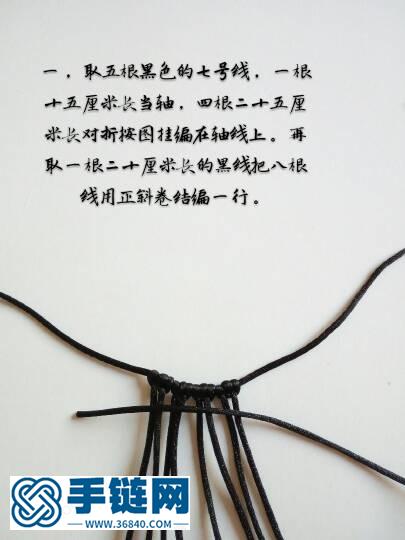 一，取五根黑色的七号线，一根
十五厘米长当轴，四根二十五厘
米长对折按图挂编在轴线上。再
取一根二十厘米长的黑线把八根
线用正斜卷结编一行。
手链网
WWW.36840.COM